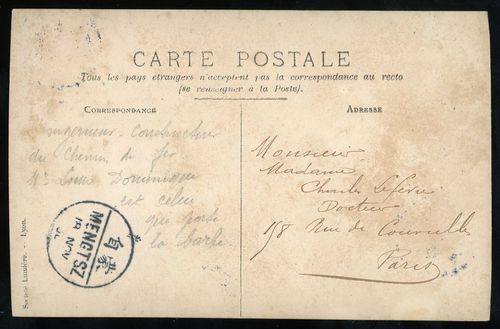 CARTE POSTALE
Tous les pays étrangers n'acceptent pas la correspondance au recto
(se renseigner à la Poste).
CORRESPONDANCE
ingénieur-Constructeur
du Chemin de fer
Mr Dominique
est celui
qui porte
la barbe
MENGTSZ
18 NOV
蒙自
ADRESSE
Monsieur
Madame
Charles Lefèvre
Docteur
158 Rue de Courcelles
Paris
Société Lumière. — Lyon.